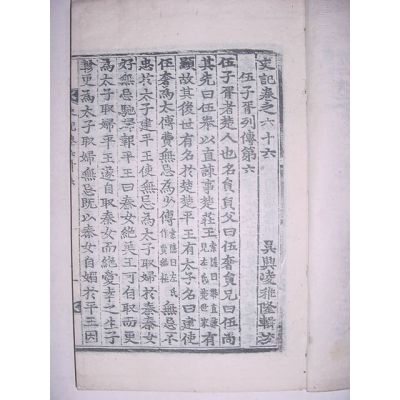 史記卷之六十六
吳興凌稚隆輯
伍子胥列傳第六
伍子胥者楚人也名員員父曰伍奢員兄曰伍尚
其先曰伍舉以直諫事楚莊王索隱曰舉直諫見左氏楚世家有
顯故其後世有名於楚楚平王有太子名曰建使
伍奢為太傅費無忌為少傅索隱曰左氏作費無極無忌不
忠於太子建平王使無忌為太子取婦於秦秦女
好無忌馳歸報平王曰秦女絕美王可自取而更
為太子取婦平王遂自取秦女而絕愛幸之生子
軫更為太子取婦無忌既以秦女自媚於平王因